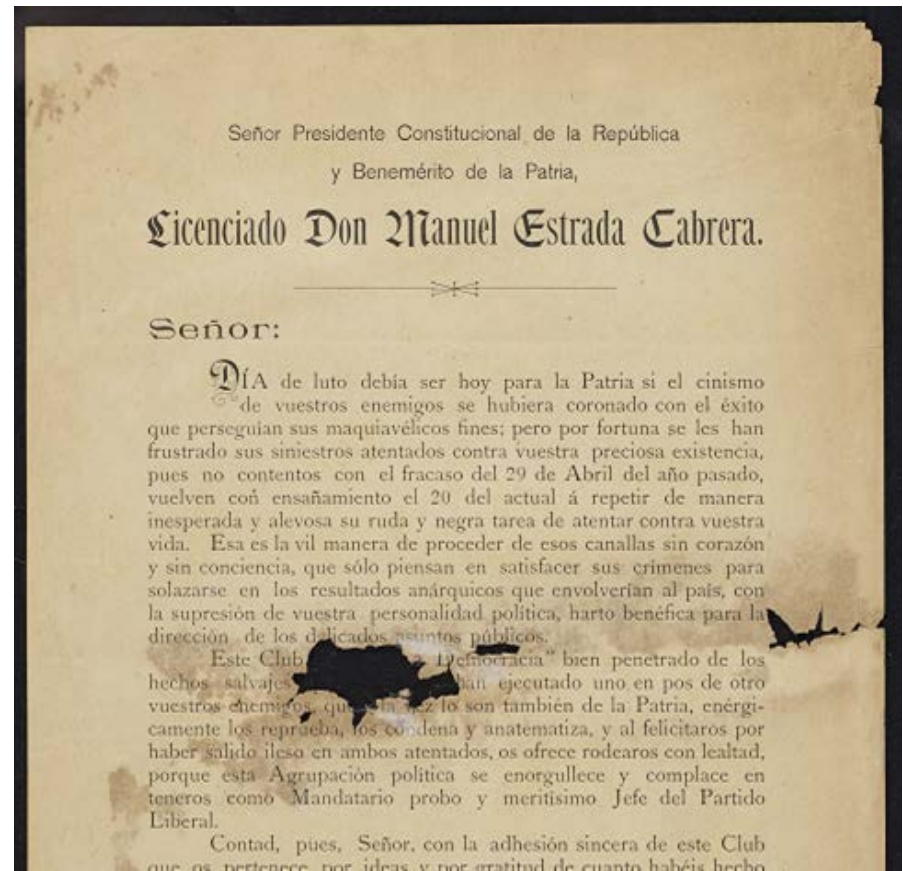 Señor Presidente Constitucional de la República
y Benemérito de la Patria,
Licenciado Don Manuel Estrada Cabrera.
Señor:
DÍA de luto debía ser hoy para la Patria si el cinismo
de vuestros enemigos se hubiera coronado con el éxito
que perseguían sus maquiavélicos fines; pero por fortuna se les han
frustrado sus siniestros atentados contra vuestra preciosa existencia,
pues no contentos con el fracaso del 29 de Abril del año pasado,
vuelven con ensañamiento el 20 del actual á repetir de manera
inesperada y alevosa su ruda y negra tarea de atentar contra vuestra
vida. Esa es la vil manera de proceder de esos canallas sin corazón
y sin conciencia, que sólo piensan en satisfacer sus crímenes para
solazarse en los resultados anárquicos que envolverían al país, con
la supresión de vuestra personalidad política, harto benéfica para la
dirección de los delicados asuntos públicos.
Este Club Democracia" bien penetrado de los
hechos salvajes han ejecutado uno en pos de otro
vuestros enemigos, que vez lo son también de la Patria, enérgi-
camente los reprueba, los condena y anatematiza, y al felicitaros por
haber salido ileso en ambos atentados, os ofrece rodearos con lealtad,
porque esta Agrupación política se enorgullece y complace en
teneros como Mandatario probo y meritísimo Jefe del Partido
Liberal.
Contad, pues, Señor, con la adhesión sincera de este Club
que os pertenece por ideas y por gratitud de cuanto habéis hecho